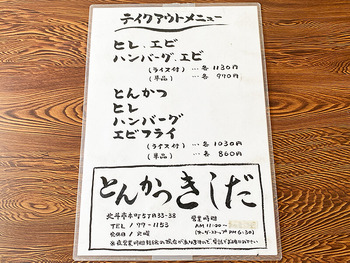 テイクアウトメニュー
ヒレ、エビ
ハンバーグ、エビ
(ライス付) … 各 1130円
(単品) … 各 970円
とんかつ
ヒレ
ハンバーグ
エビフライ
(ライス付) … 各 1030円
(単品) … 各 860円
とんかつきしだ
北斗市本町5丁目33-38
TEL / 77-1153
定休日 / 火曜
営業時間
AM 11:00~
(オーダーストップ PM 6:30)